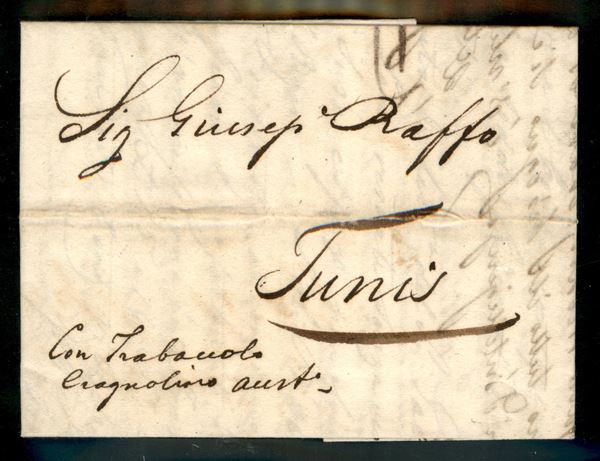 Sig Giusepe Raffo
Tunis
Con Trabaccolo
Cragnolino aust.o